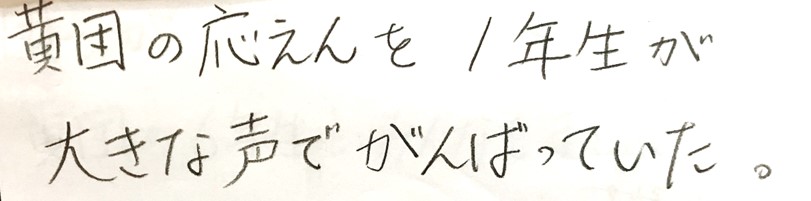 黄団の応えんを1年生が
大きな声でがんばっていた。